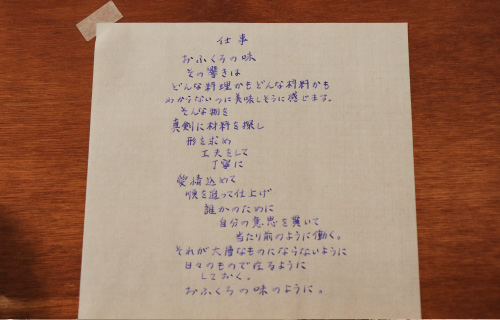 仕事
おふくろの味
その響きは
どんな料理かもどんな材料かも
わからないのに美味しそうに感じます。
そんな物を
真剣に材料を探し
形を求め
工夫をして
丁寧に
愛情込めて
順を追って仕上げ
誰かのために
自分の意思を貫いて
当たり前のように働く。
それが大層なものにならないように
日々のもので在るように
しておく。
おふくろの味のように。